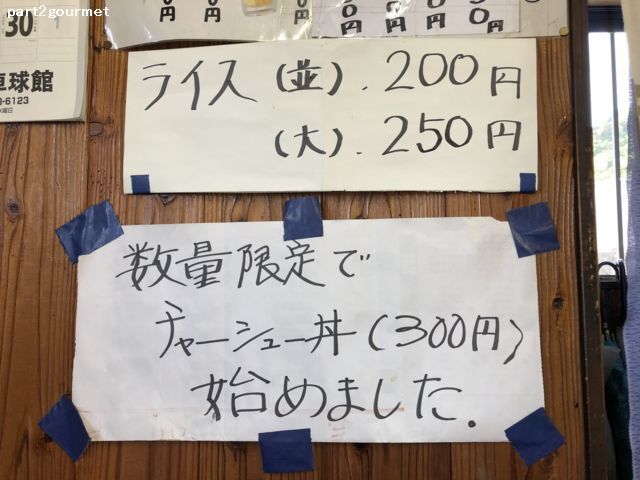 part2gourmet
30
卓球館
-6123
ライス (並). 200円
(大). 250円
数量限定で
チャーシュー丼(300円)
始めました.